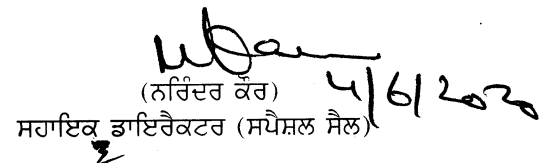 (ਨਰਿੰਦਰ ਕੌਰ) 4/6/2020
ਸਹਾਇਕ ਡਾਇਰੈਕਟਰ (ਸਪੈਸ਼ਲ ਸੈਲ)